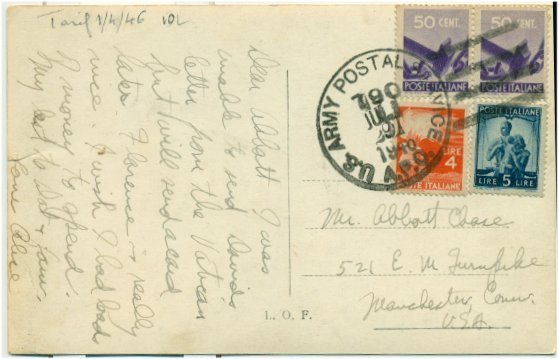 Tarif 1/4/46 10L
Dear Abbott I was
unable to send David's
letter from the Vatican
but will send a card
later. Florence is really
nice. I wish I had loads
of money to spend.
My best to Dot + fam.
Love
50 CENT.
POSTE ITALIANE
50 CENT.
POSTE ITALIANE
U.S. ARMY POSTAL SERVICE
A.P.O.
790
JUL
194
LIRE
4
POSTE ITALIANE
POSTE ITALIANE
LIRE 5 LIRE
Mr. Abbott Chase
521 E. M Turnpike
Manchester, Conn.
USA.
L. O. F.